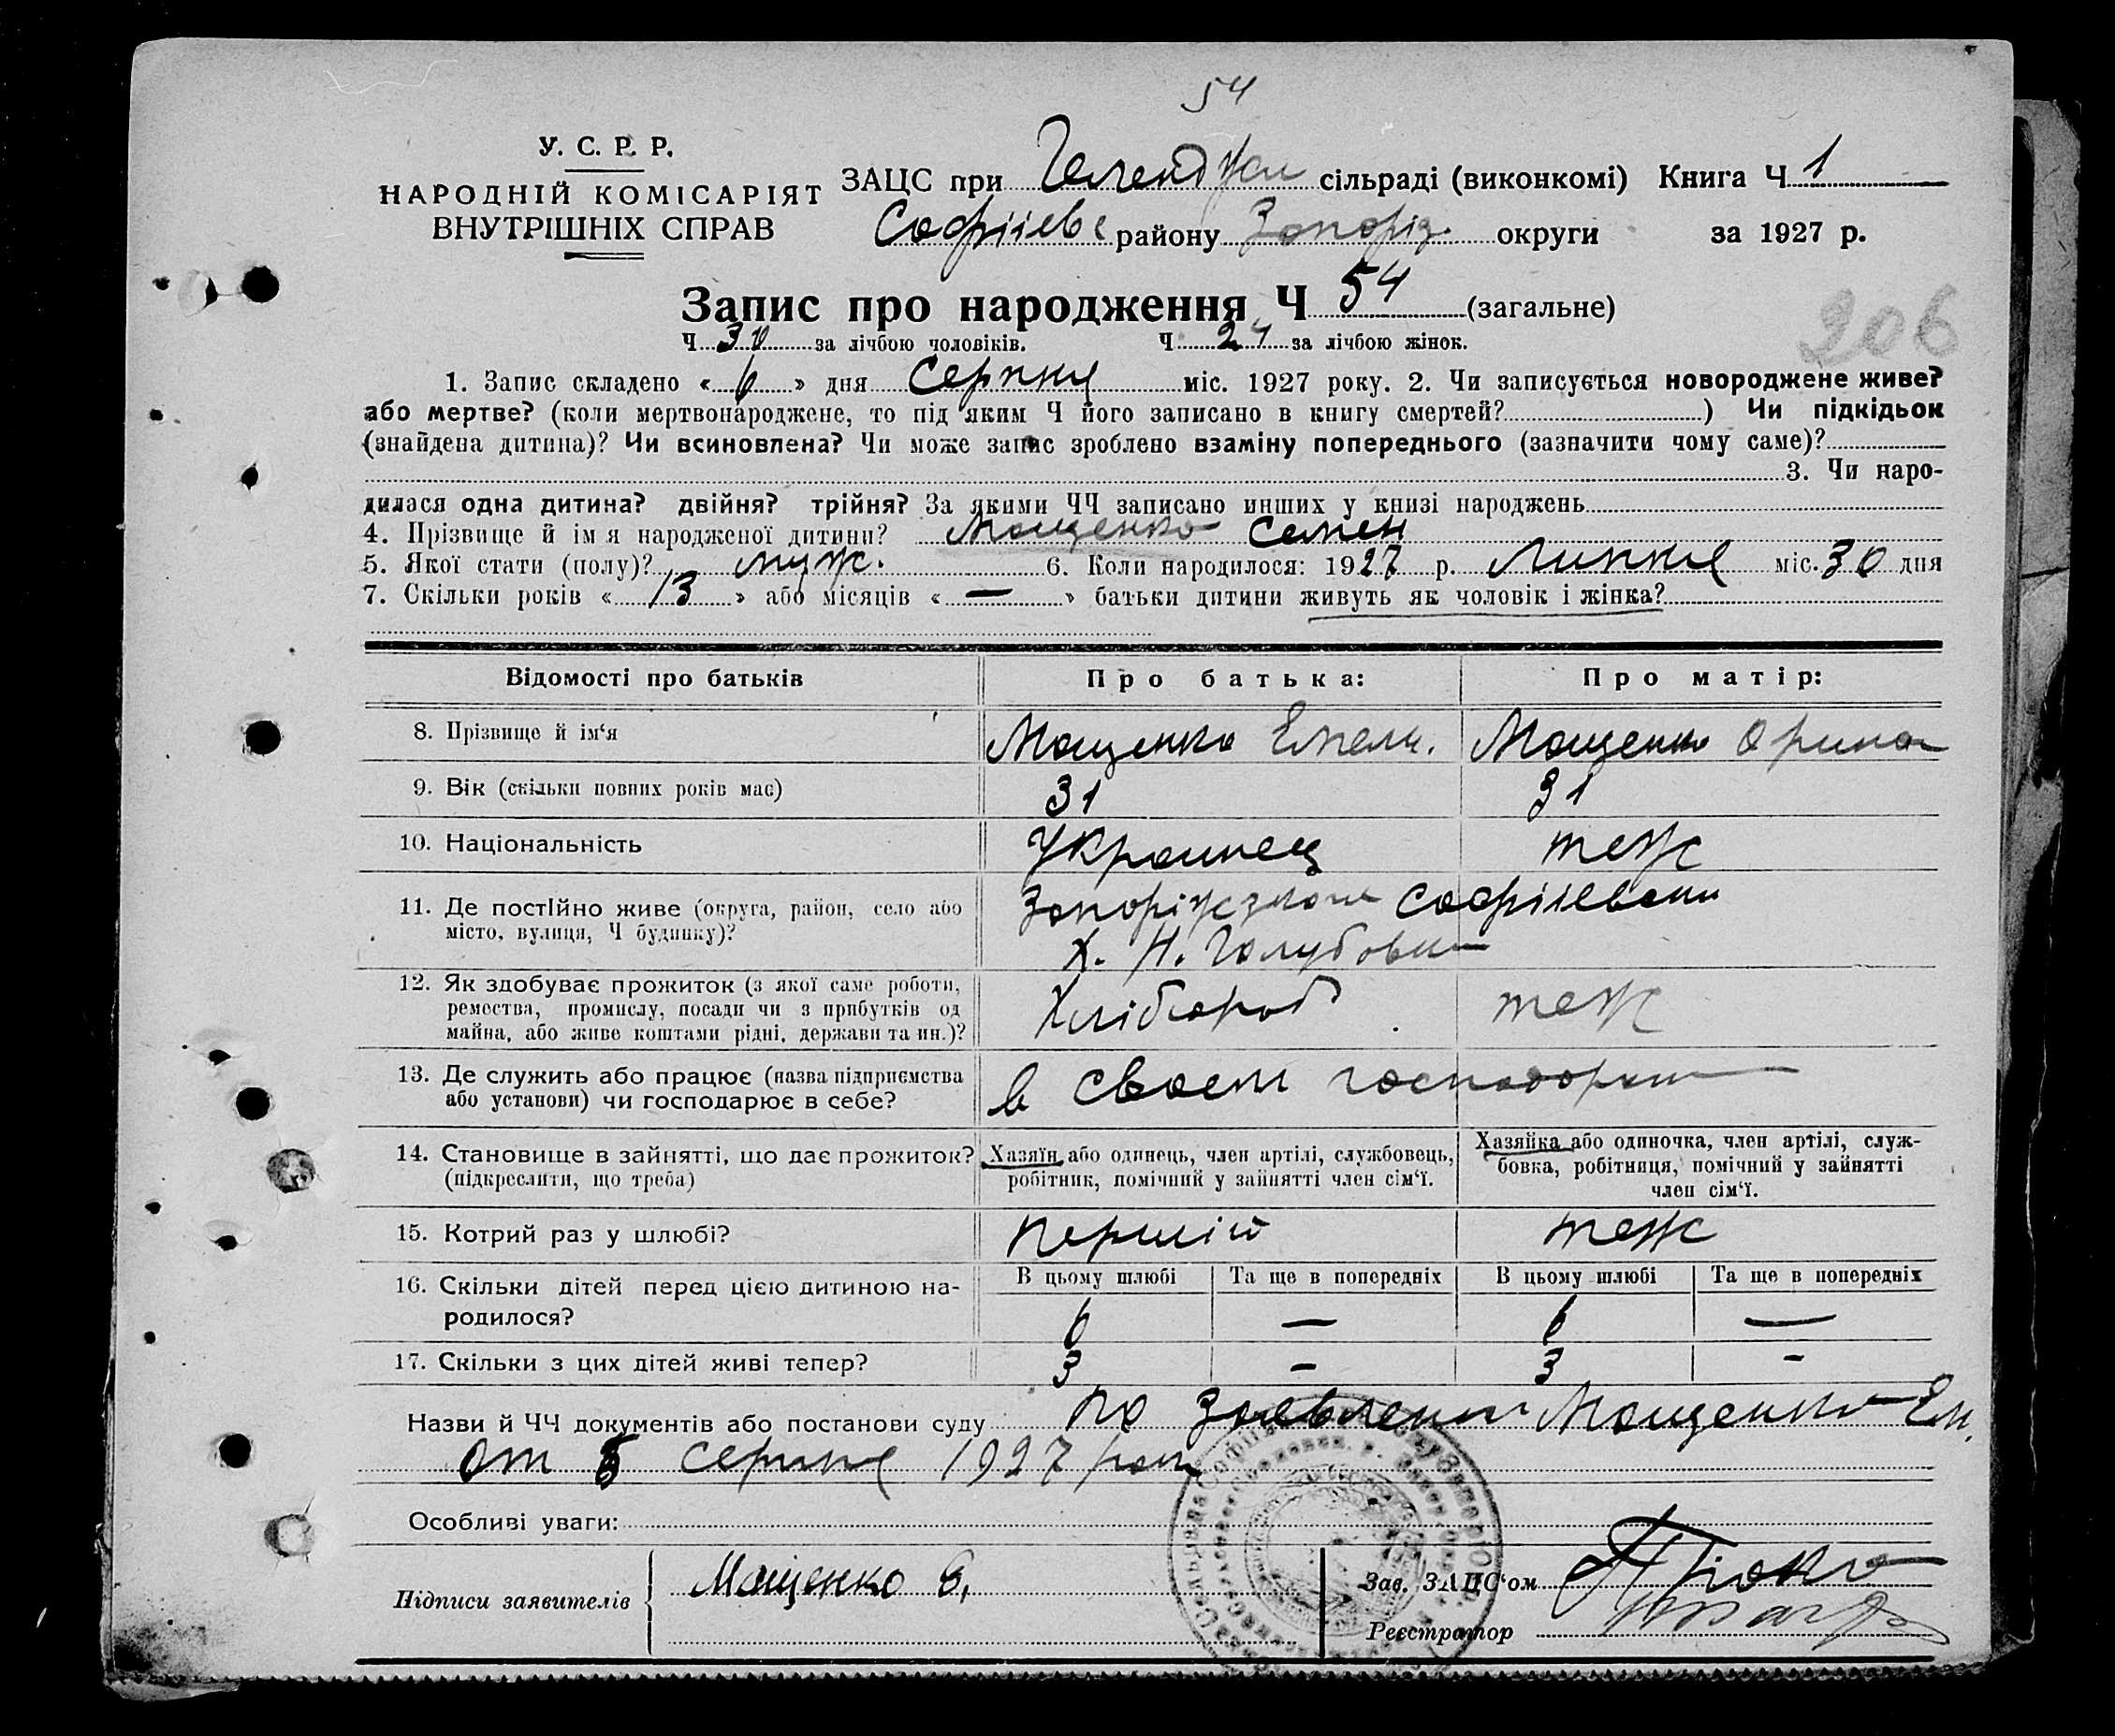 54
У. С. Р. Р.
НАРОДНІЙ КОМІСАРІЯТ
ВНУТРІШНІХ СПРАВ
ЗАЦС при сільраді (виконкомі) Книга Ч 1
Софіiевс району Запоріз. округи за 1927 р.
Запис про народження Ч 54 (загальне)
206
Ч 30 за лічбою чоловіків. Ч 24 за лічбою жінок.
1. Запис складено « 6 » дня Серпня міс. 1927 року. 2. Чи записується новороджене живе?
або мертве? (коли мертвонароджене, то під яким Ч його записано в книгу смертей? ) Чи підкідьок
(знайдена дитина)? Чи всиновлена? Чи може запис зроблено взаміну попереднього (зазначити чому саме)?
3. Чи наро-
дилася одна дитина? двійня? трійня? За якими ЧЧ записано инших у книзі народжень
4. Прізвище й ім я народженої дитини? Мащенко Семен
5. Якої стати (полу)? муж. 6. Коли народилося: 1927 р. Липня міс. 30 дня
7. Скільки років « 13 » або місяців « — » батьки дитини живуть як чоловік і жінка?
Відомості про батьків Про батька: Про матір:
8. Прізвище й ім‘я Мащенко Емель. Мащенко Орина
9. Вік (скільки повних років має) 31 31
10. Національність Украинец теж
11. Де постійно живе (округа, район, село або
місто, вулиця, Ч будинку)?
Софіієвски
Х. Н. Голубовка
12. Як здобуває прожиток (з якої саме роботи,
ремества, промислу, посади чи з прибутків од
майна, або живе коштами рідні, держави та ин.)?
Хлібороб теж
13. Де служить або працює (назва підприємства
або установи) чи господарює в себе?
в своем
14. Становище в зайнятті, що дає прожиток?
(підкреслити, що треба)
Хазяїн або одинець, член артілі, службовець,
робітник, помічний у зайнятті член сім‘ї.
Хазяйка або одиночка, член артілі, служ-
бовка, робітниця, помічний у зайнятті
член сім‘ї.
15. Котрий раз у шлюбі? першій теж
В цьому шлюбі Та ще в попередніх В цьому шлюбі Та ще в попередніх
16. Скільки дітей перед цією дитиною на-
родилося?
6 — 6 —
17. Скільки з цих дітей живі тепер? 3 - 3 -
Назви й ЧЧ документів або постанови суду по Заявлению Мащенко Ем.
от 5 серпня 1927 рок
Особливі уваги:
Підписи заявителів Мащенко Е.
Зав. ЗАЦС‘ом
Реєстратор